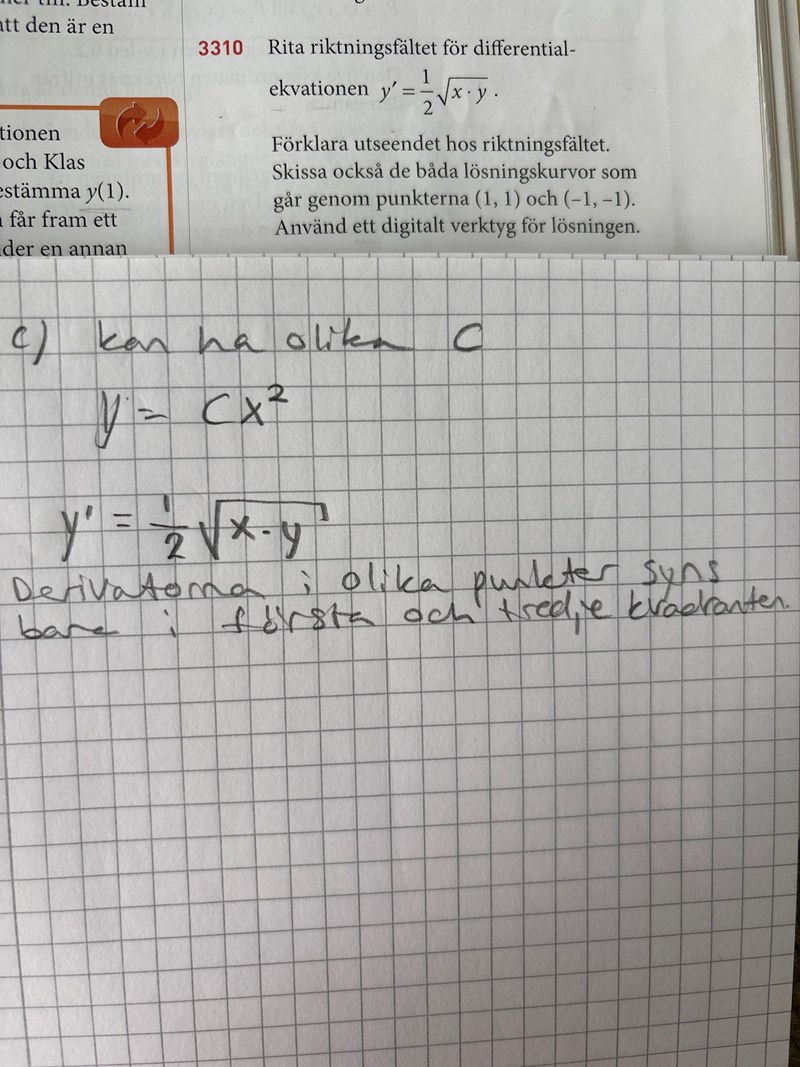 att den är en
tionen
och Klas
estämma y(1).
får fram ett
der en annan
3310 Rita riktningsfältet för differential-
ekvationen y′ = 1/2 √x · y .
Förklara utseendet hos riktningsfältet.
Skissa också de båda lösningskurvor som
går genom punkterna (1, 1) och (−1, −1).
Använd ett digitalt verktyg för lösningen.
c) kan ha olika C
y = Cx²
y' = 1/2 √x·y
Derivatorna i olika punkter syns
bara i första och tredje kvadranten.